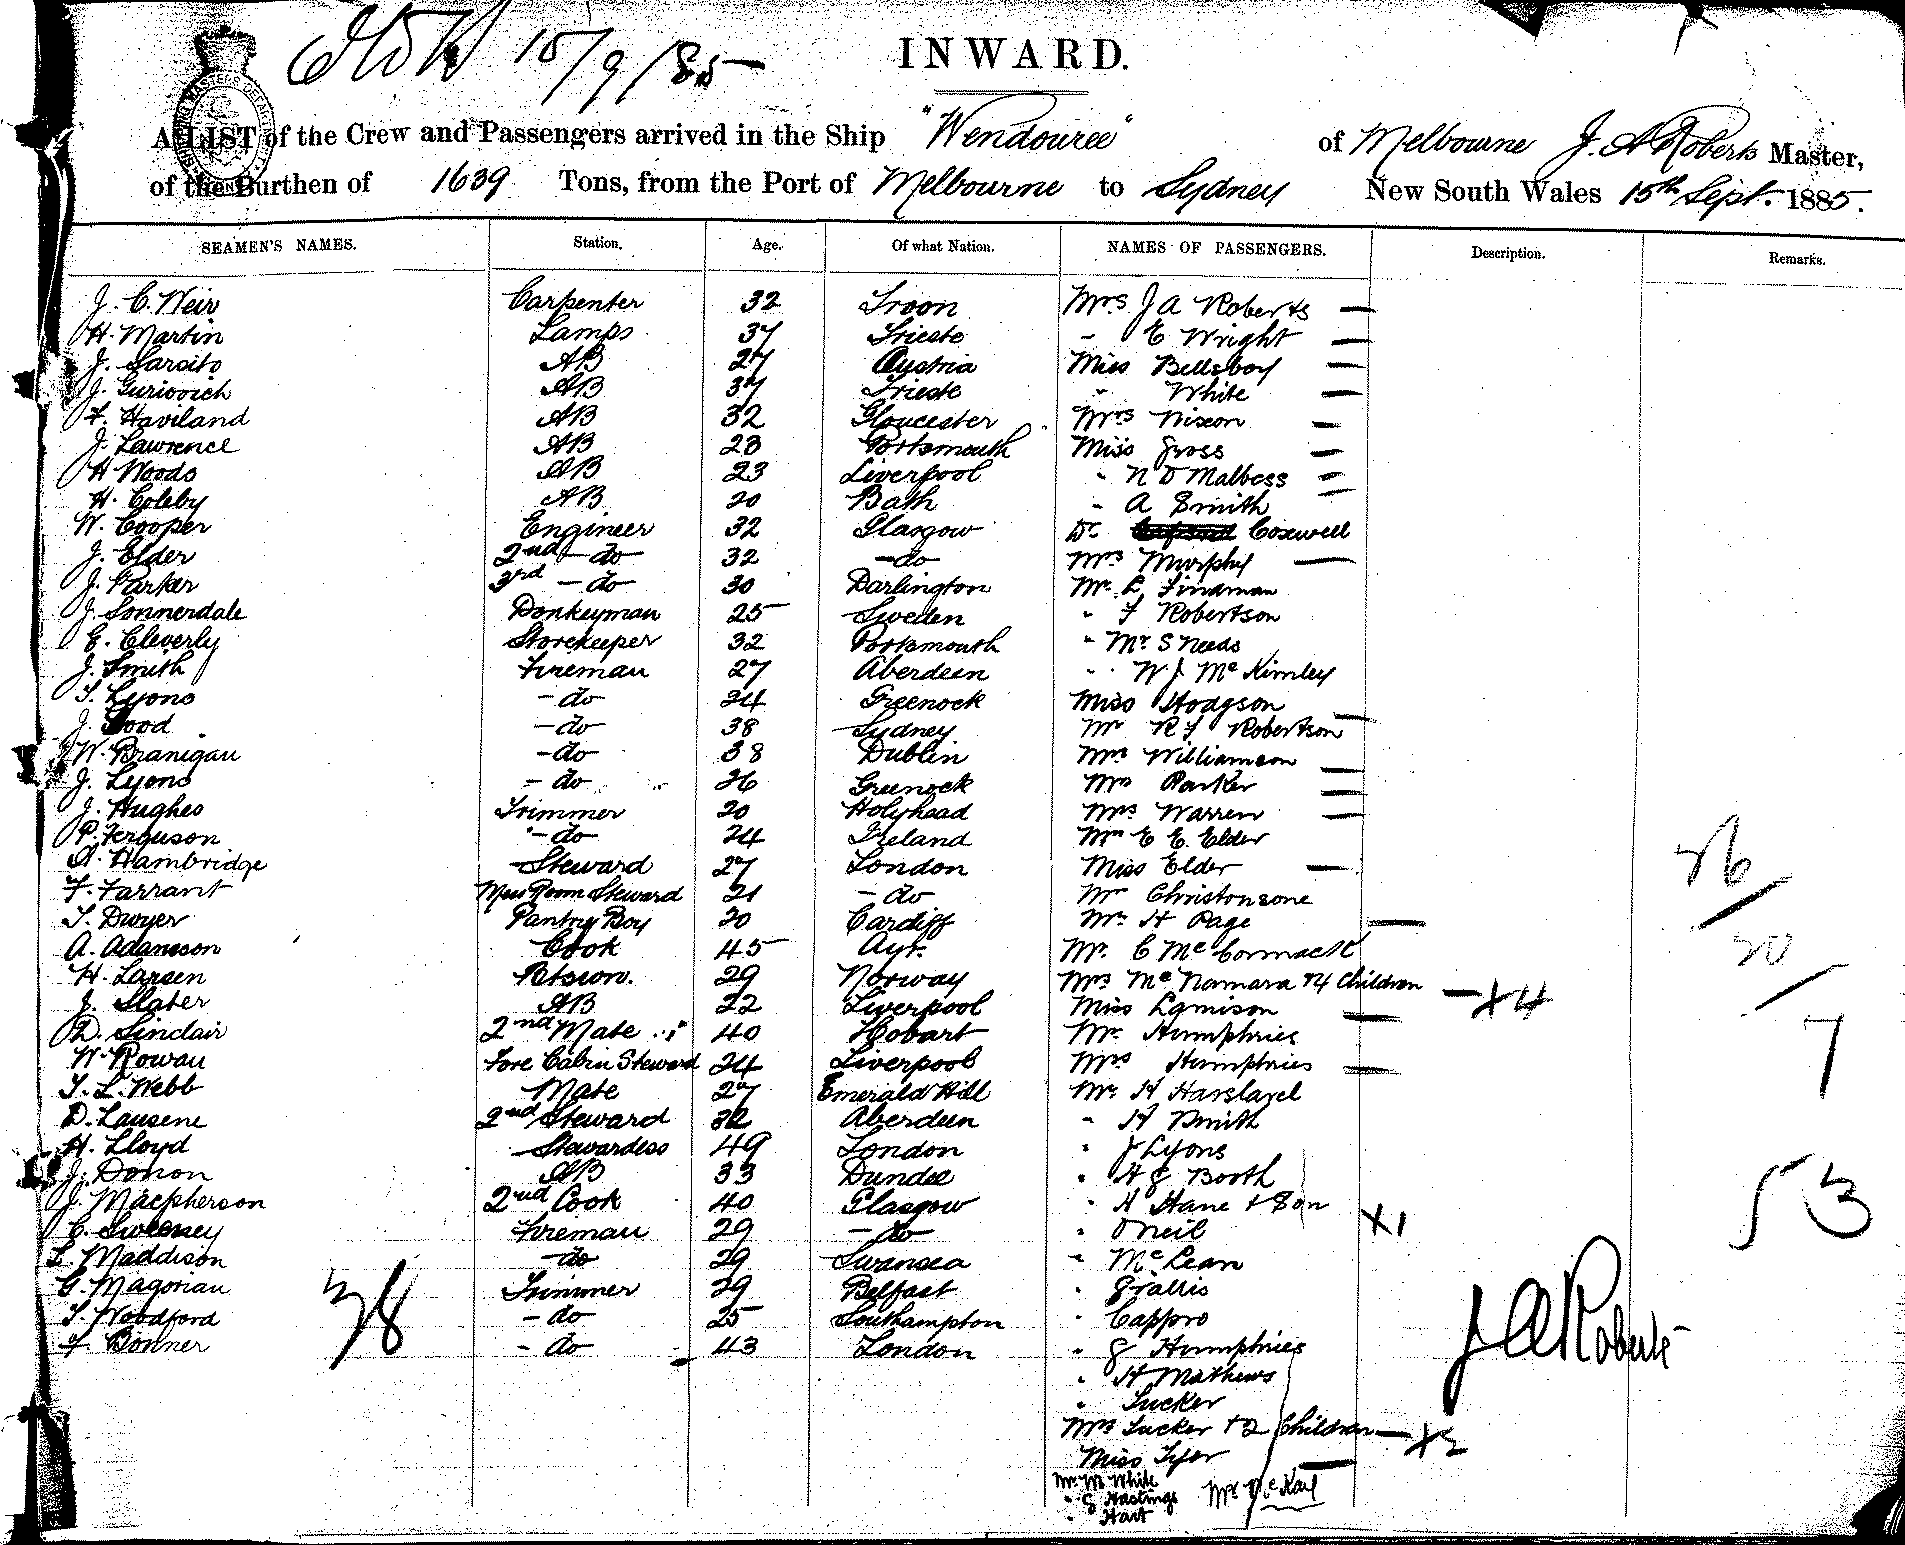 15/9/85
INWARD.
A LIST of the Crew and Passengers arrived in the Ship "Wendouree" of Melbourne J. A Roberts Master,
of the Burthen of 1639 Tons, from the Port of Melbourne to Sydney New South Wales 15th Sept. 1885.
SEAMEN'S NAMES. Station. Age. Of what Nation. NAMES OF PASSENGERS. Description. Remarks.
J. C. Weir Carpenter 32 Troon Mrs J A Roberts —
H. Martin Lamps 37 Trieste " E Wright —
J. Sarsito AB 27 Austria Miss Bellsboy —
J. Gurivoich AB 37 Trieste " White —
F. Haviland AB 32 Gloucester Mrs Nixon —
J. Lawrence AB 23 Portsmouth Miss Gross —
H Woods AB 23 Liverpool " N D Malbess —
H. Coleby AB 20 Bath " A Smith —
W. Cooper Engineer 32 Glasgow Dr Coxwell
J. Elder 2nd - do 32 - do Mrs Murphy —
J. Parker 3rd - do 30 Darlington Mr L Findman
J. Sonnerdale Donkeyman 25 Sweden " F Robertson
E. Cleverly Storekeeper 32 Portsmouth " Mr S Needs
J. Smith Fireman 27 Aberdeen " W J. Mc Kimley
T. Lyons - do 24 Greenock Miss Hodgson —
J. Good - do 38 Sydney Mr R J Robertson
W. Branigan - do 38 Dublin Mrs Williamson —
J. Lyons - do 26 Greenock Mrs Parker —
J. Hughes Trimmer 20 Holyhead Mrs Warren —
P. Ferguson - do 24 Ireland Mr E E Elder
A. Hambridge Steward 27 London Miss Elder — 26
F. Farrant Mess Room Steward 21 - do Mr Christonsone
T. Dwyer Pantry Boy 20 Cardiff Mrs H Page —
A. Adamson Cook 45 Ayr. Mr. C Mc Cormack 20
H. Larsen Bosun. 29 Norway Mrs Mc Namara & 4 Children — +4
J. Slater AB 22 Liverpool Miss Lamison —
D. Sinclair 2nd Mate 40 Hobart Mr. Humphries 7
W. Rowan Fore Cabin Steward 24 Liverpool Mrs Humphries —
T. L. Webb Mate 27 Emerald Hill Mr H Harslagel
D. Lausene 2nd Steward 32 Aberdeen " H Smith
H. Lloyd Stewardess 49 London " J Lyons
J. Donon AB 33 Dundee " H G Booth
J. Macpherson 2nd Cook 40 Glasgow " H Hane + Son +1 53
C. Sweeney Fireman 29 - do " O'Neil
L. Maddison - do 29 Swansea " Mc Lean
G. Magorian Trimmer 29 Belfast " Grallis
T. Woodford - do 25 Southampton " Cappro
F. Bonner - do 43 London " G Humphries
38 J A Roberts
" H Mathews
" Tucker
Mrs Tucker + 2 Children — +2
Miss Tyfor —
Mr. M White Mrs Mc Karl
" G Hastings
" Hart